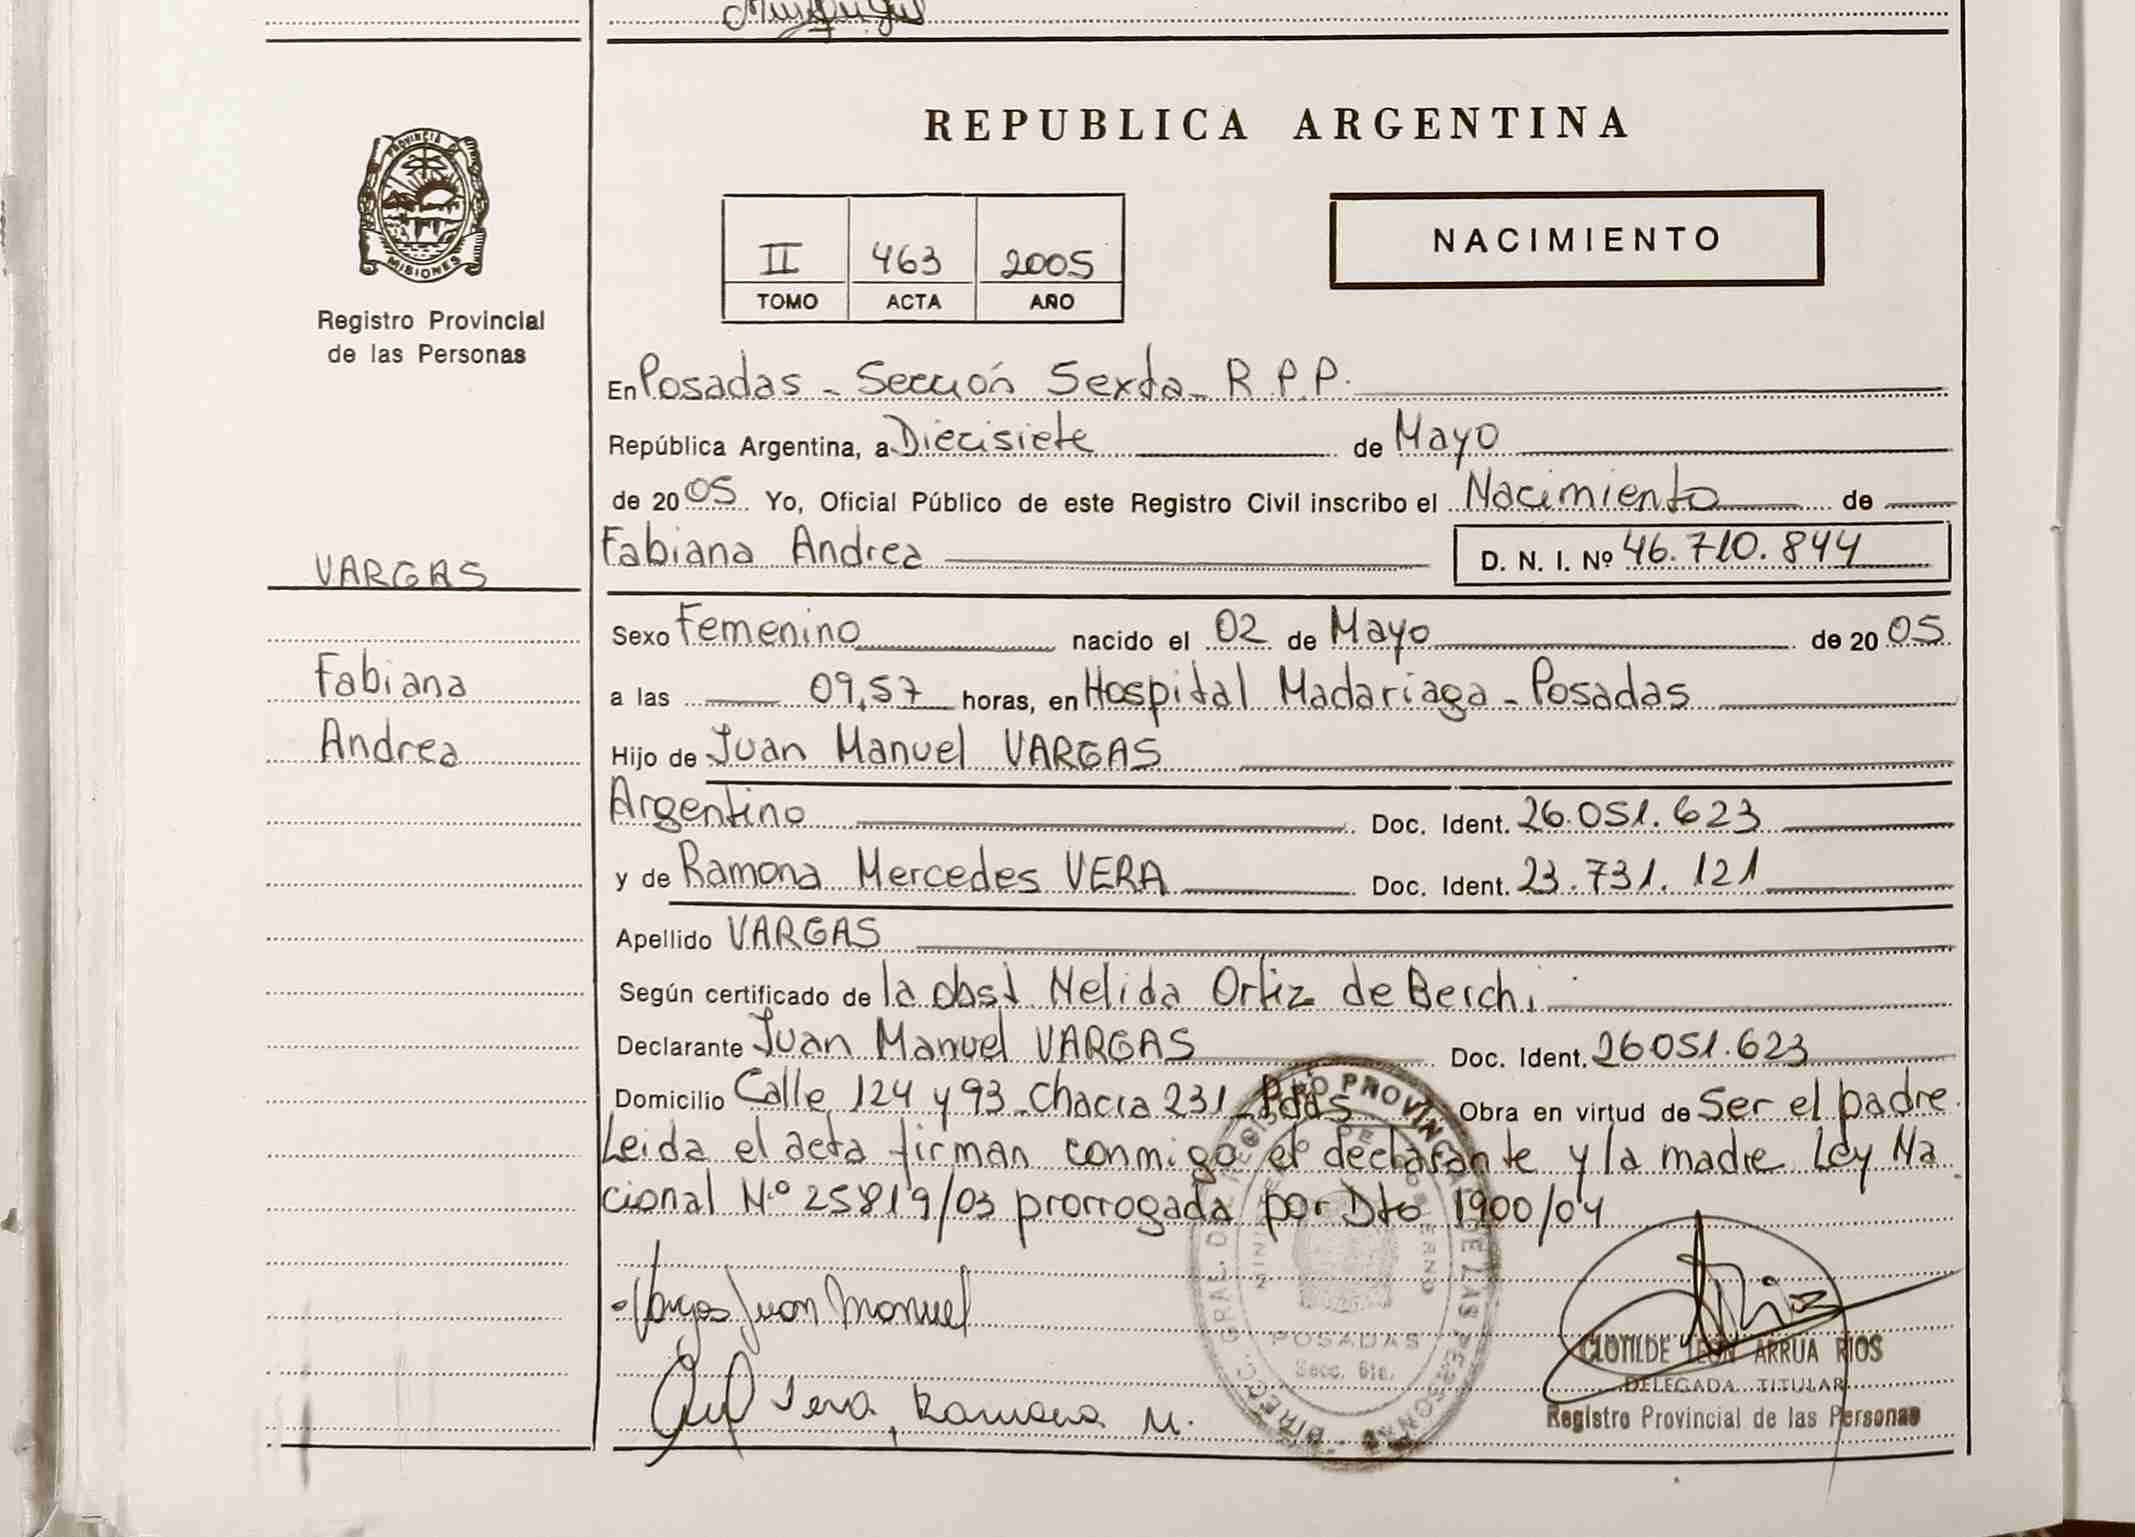 REPUBLICA ARGENTINA
PROVINCIA DE
MISIONES
Registro Provincial
de las Personas
II 463 2005
TOMO ACTA AÑO
NACIMIENTO
En Posadas - Sección Sexta - R.P.P.
República Argentina, a Diecisiete de Mayo
de 2005 Yo, Oficial Público de este Registro Civil inscribo el Nacimiento de
VARGAS
Fabiana Andrea D. N. I. Nº 46.710.844
Sexo Femenino nacido el 02 de Mayo de 2005
Fabiana
a las 09,57 horas, en Hospital Madariaga - Posadas
Andrea
Hijo de Juan Manuel VARGAS
Argentino Doc. Ident. 26.051.623
y de Ramona Mercedes VERA Doc. Ident. 23.731.121
Apellido VARGAS
Según certificado de la obst Nelida Ortiz de Berchi
Declarante Juan Manuel VARGAS Doc. Ident. 26051.623
Domicilio Calle 124 y 93 - Chacra 231 - Pdas Obra en virtud de Ser el padre.
Leida el acta firman conmigo el declarante y la madre Ley Na
cional N.º 25819/03 prorrogada por Dto 1900/04
Vargas Juan Manuel
Vera, Ramona M.
DIRECC. GRAL. DEL REGISTRO PROVINCIAL DE LAS PERSONAS
MINISTERIO DE GOBIERNO
POSADAS
Secc. 6ta.
CLOTILDE LEON ARRUA RIOS
DELEGADA TITULAR
Registro Provincial de las Personas